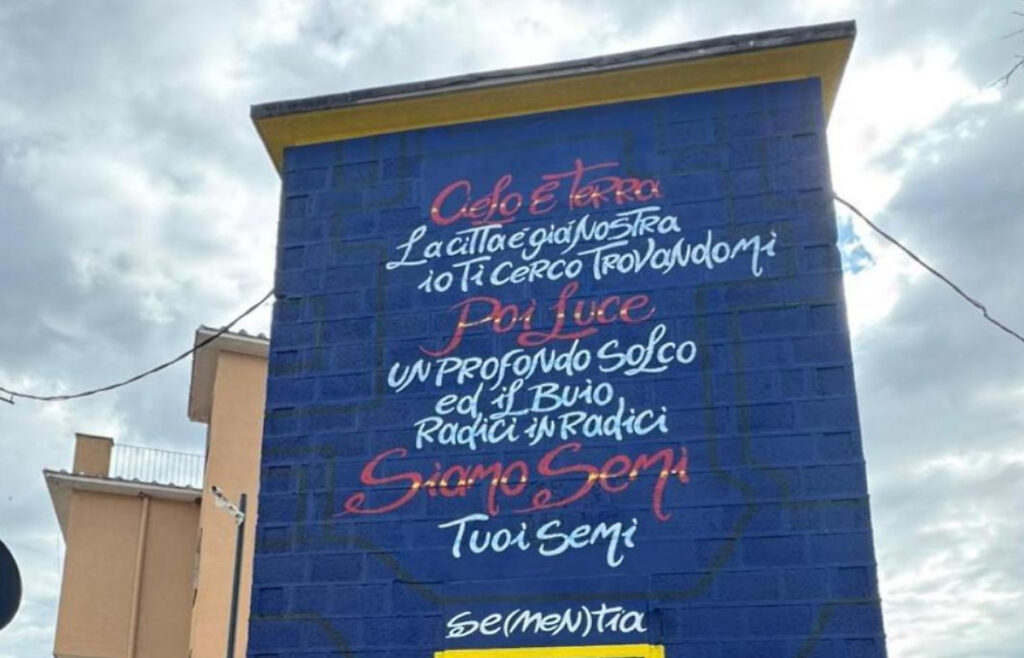 Cielo E TeRRa
La città è già NOSTRa
io Ti CeRCO TROVaNdOMi
Poi Luce
UN PROfONdO SOLCO
ed iL Buio
Radici iN Radici
Siamo Semi
Tuoi Semi
Se(MeN)Tia